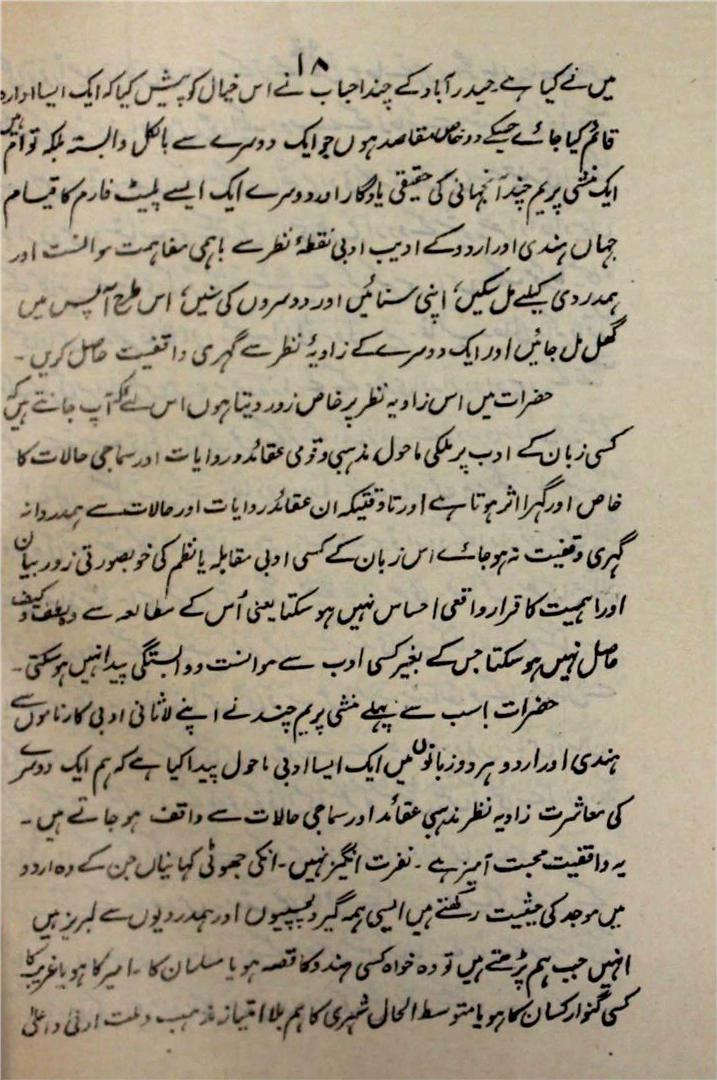 ۱۸
میں نے کیا ہے۔ حیدرآباد کے چند احباب نے اس خیال کو پیش کیا کہ ایک ایسا ادارہ
قائم کیا جائے جسکے دو خاص مقاصد ہوں جو ایک دوسرے سے بالکل وابستہ بلکہ توام ہیں
ایک منشی پریم چند آنجہانی کی حقیقی یادگار اور دوسرے ایک ایسے پلیٹ فارم کا قیام
جہاں ہندی اور اردو کے ادیب ادبی نقطۂ نظر سے باہمی مفاہمت موانست اور
ہمدردی کیلئے مل سکیں، اپنی سنائیں اور دوسروں کی سنیں، اس طرح آپس میں
گھل مل جائیں اور ایک دوسرے کے زاویۂ نظر سے گہری واقفیت حاصل کریں۔
حضرات میں اس زاویہ نظر پر خاص زور دیتا ہوں اس لئے کہ آپ جانتے ہیں کہ
کسی زبان کے ادب پر ملکی ماحول، مذہبی و قومی عقائد و روایات اور سماجی حالات کا
خاص اور گہرا اثر ہوتا ہے اور تاوقتیکہ ان عقائد روایات اور حالات سے ہمدردانہ
گہری وقفیت نہ ہو جائے اس زبان کے کسی ادبی مقابلہ یا نظم کی خوبصورتی زور بیان
اور اہمیت کا قرار واقعی احساس نہیں ہو سکتا یعنی اُس کے مطالعہ سے وہ لطف و کیف
حاصل نہیں ہو سکتا جس کے بغیر کسی ادب سے موانست و وابستگی پیدا نہیں ہو سکتی۔
حضرات! سب سے پہلے منشی پریم چند نے اپنے لاثانی ادبی کارناموں سے
ہندی اور اردو ہر دو زبانوں میں ایک ایسا ادبی ماحول پیدا کیا ہے کہ ہم ایک دوسرے
کی معاشرت زاویہ نظر مذہبی عقائد اور سماجی حالات سے واقف ہو جاتے ہیں۔
یہ واقفیت محبت آمیز ہے۔ نفرت انگیز نہیں۔ انکی چھوٹی کہانیاں جن کے وہ اردو
میں موجد کی حیثیت رکھتے ہیں ایسی ہمہ گیر دلچسپیوں اور ہمدردیوں سے لبریز ہیں
انہیں جب ہم پڑھتے ہیں تو وہ خواہ کسی ہندو کا قصہ ہو یا مسلمان کا۔ امیر کا ہو یا غریب کا
کسی گنوار کسان کا ہو یا متوسط الحال شہری کا ہم بلا امتیاز مذہب و ملت ادنیٰ و اعلیٰ